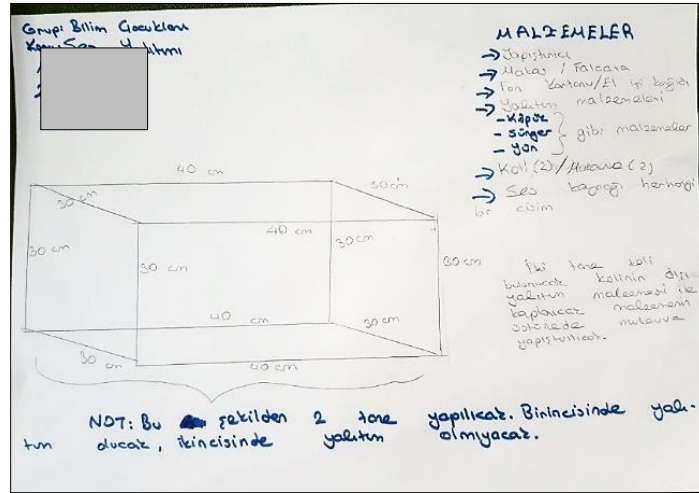 Grup: Bilim Çocukları
Konu: Ses Yalıtımı
MALZEMELER
→ Yapıştırıcı
→ Makas / Falçata
→ Fon Kartonu / El işi kağıdı
→ Yalıtım malzemeleri
- Köpük
- Sünger
- Yün
gibi malzemeler
→ Koli (2) / Mukavva (2)
→ Ses kaynağı herhangi
bir cisim
40 cm
30 cm
30 cm
40 cm
30 cm
30 cm
30 cm
30 cm
40 cm
30 cm
30 cm
40 cm
İki tane koli
bulunucak kolinin dışı
yalıtım malzemesi ile
kaplanıcak malzemenin
üstünede mukavva
yapıştırılıcak.
NOT: Bu şekilden 2 tane yapılıcak. Birincisinde yalı-
tım olucak, ikincisinde yalıtım olmıyacak.